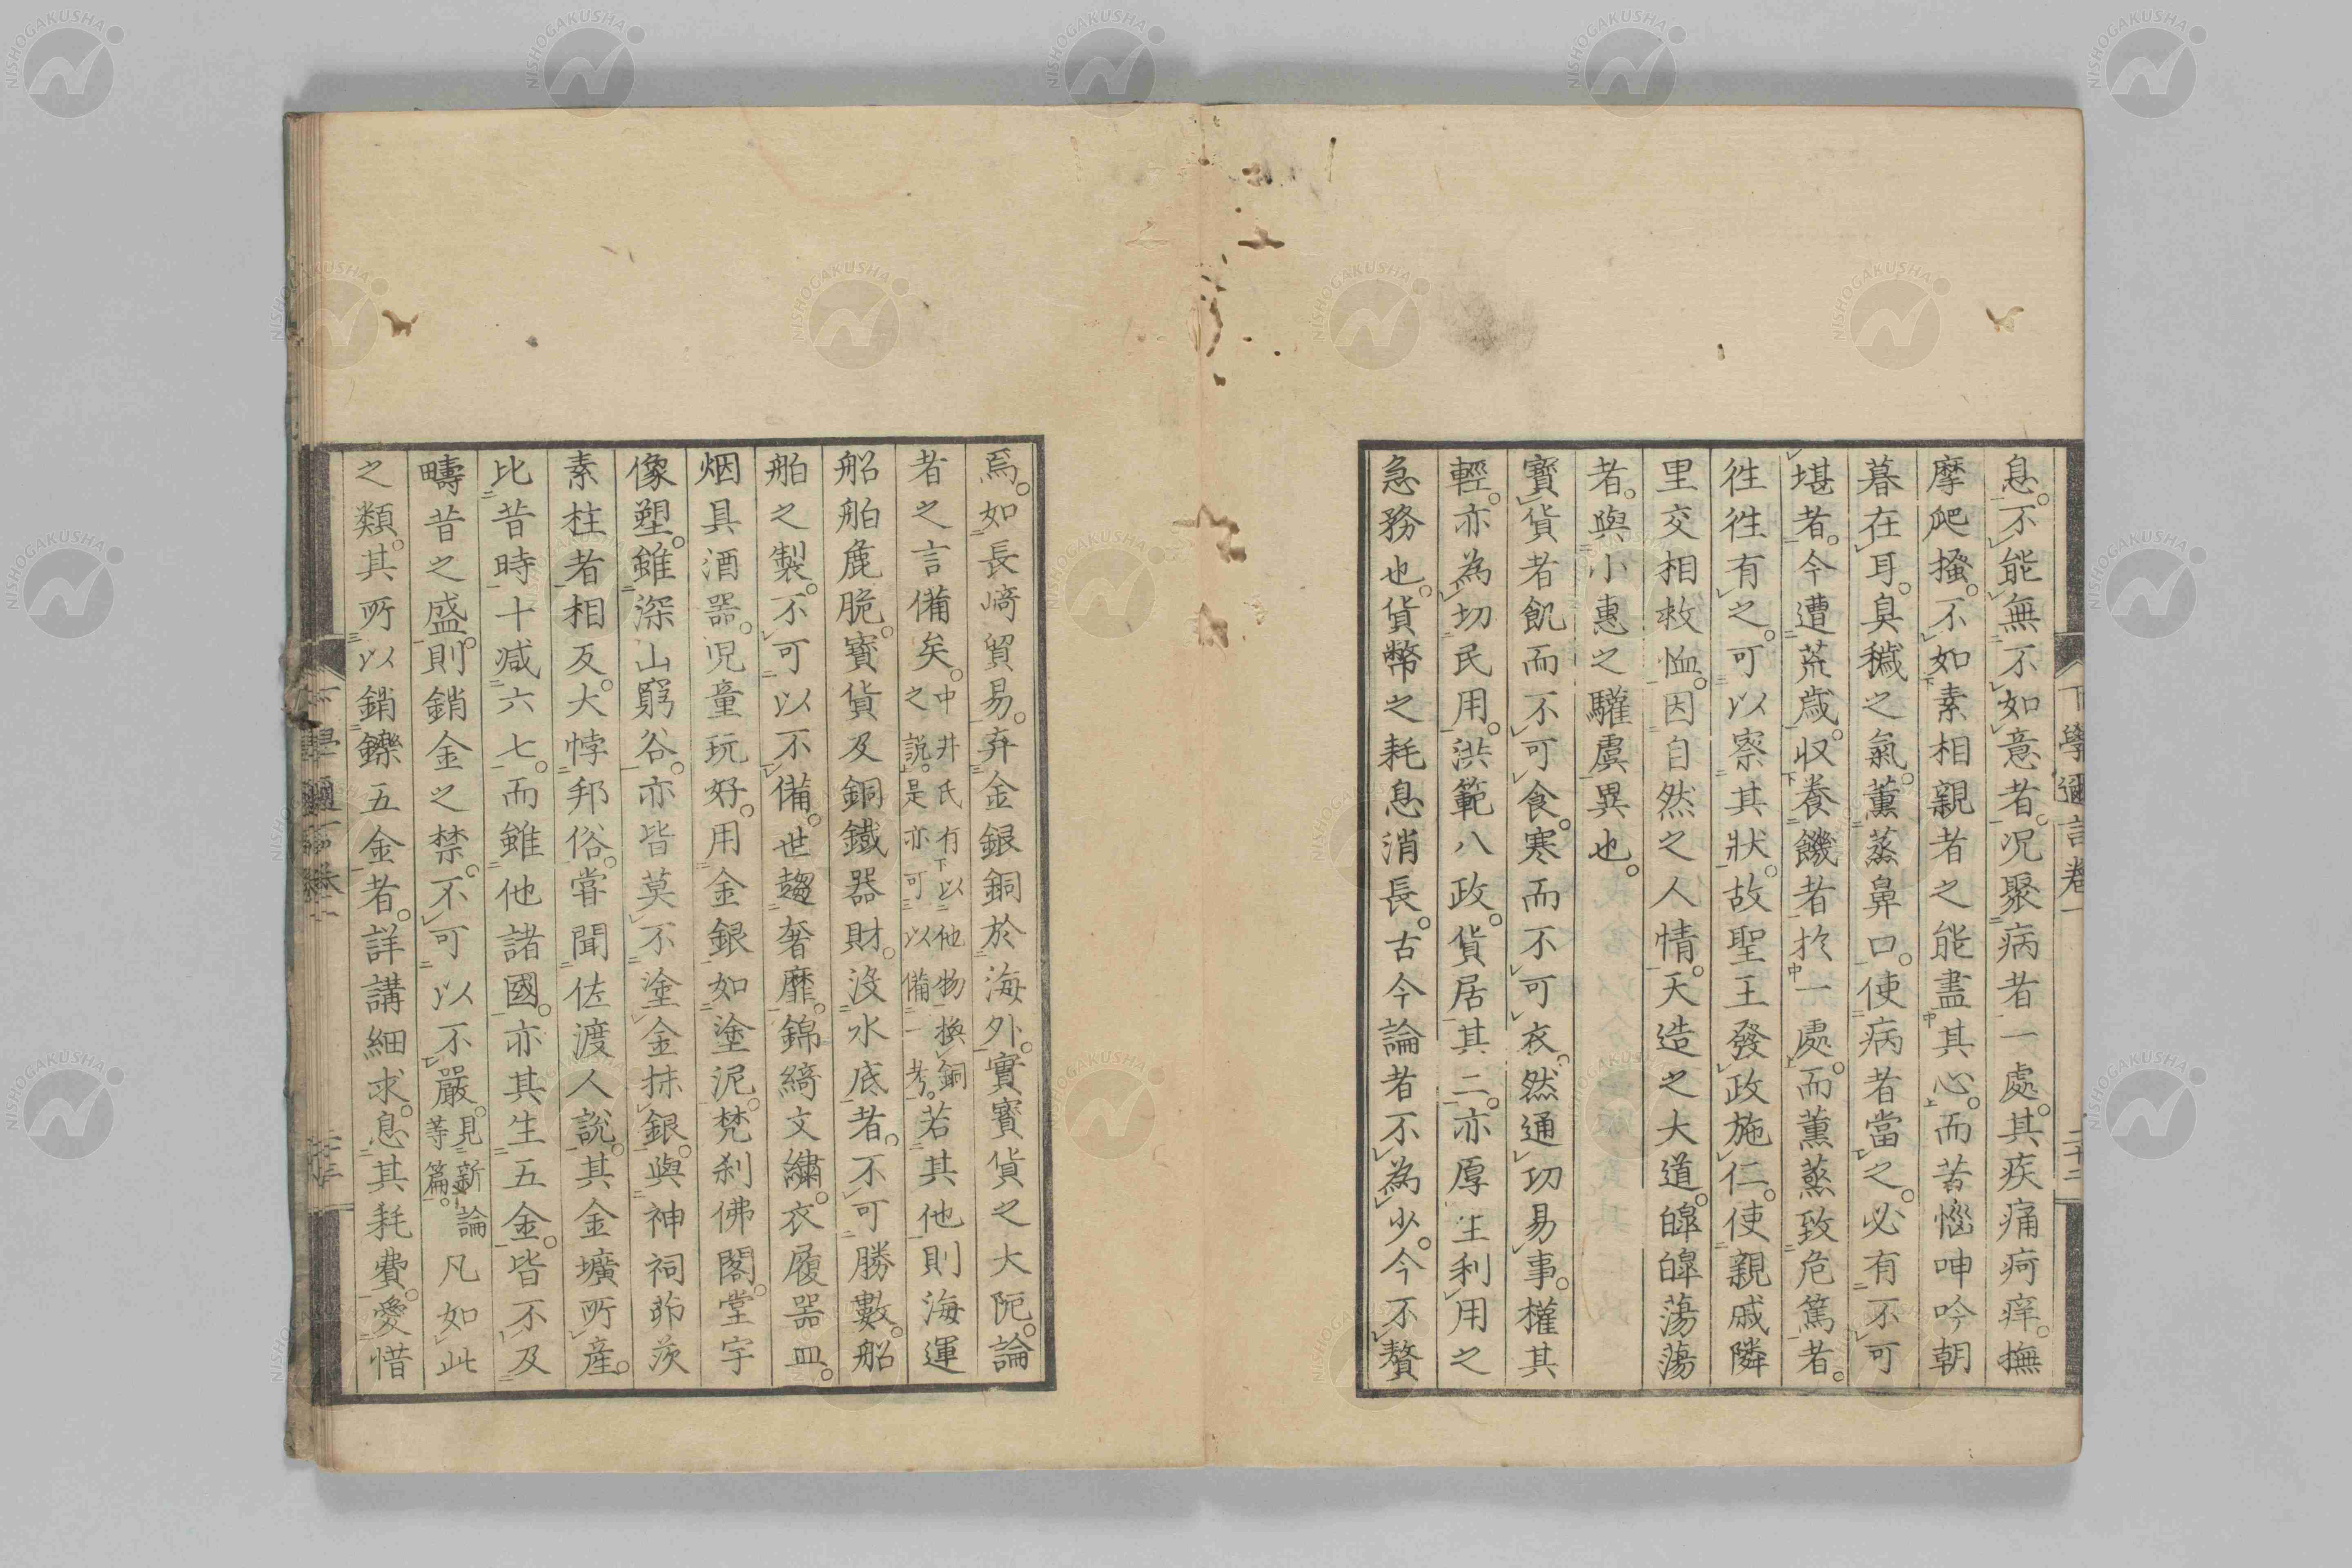 下學邇言卷一
二十二
息。不能無不如意者。况聚病者一處。其疾痛疴痒。撫
摩爬搔。不如素相親者之能盡其心。而苦惱呻吟朝
暮在耳。臭穢之氣。薰蒸鼻口。使病者當之。必有不可
堪者。今遭荒歳。収養饑者於一處。而薰蒸致危篤者。
徃徃有之。可以察其狀。故聖王發政施仁。使親戚隣
里交相救恤。因自然之人情。天造之大道。皥皥蕩蕩
者。與小惠之驩虞異也。
寳貨者飢而不可食。寒而不可衣。然通功易事。權其
輕。亦為切民用。洪範八政。貨居其二。亦厚生利用之
急務也。貨幣之耗息消長。古今論者不為少。今不贅
焉。如長﨑貿易。弃金銀銅於海外。實寳貨之大阨。論
者之言備矣。中井氏有以他物換銅
之說。是亦可以備一考。若其他則海運
船舶麁脆。寳貨及銅鐵器財。沒水底者。不可勝數。船
舶之製。不可以不備。世趨奢靡。錦綺文繍。衣履器皿。
烟具酒器。児童玩好。用金銀如塗泥。梵刹佛閣。堂宇
像塑。雖深山窮谷。亦皆莫不塗金抹銀。與神祠茆茨
素柱者相反。大悖邦俗。甞聞佐渡人說。其金壙所產。
比昔時十减六七。而雖他諸國。亦其生五金。皆不及
疇昔之盛。則銷金之禁。不可以不嚴。見新論
等篇。凡如此
之類。其所以銷鑠五金者。詳講細求。息其耗費。愛惜